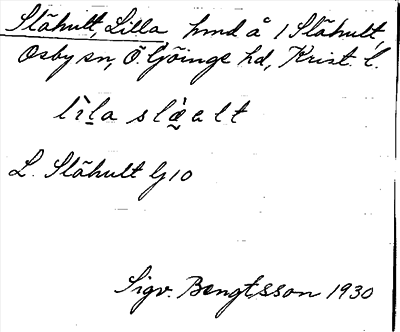 Slähult, Lilla hmd å 1 Slähult,
Osby sn, Ö. Göinge hd, Krist. l.
lìla slàet
L. Slähult G10
Sigv. Bengtsson 1930